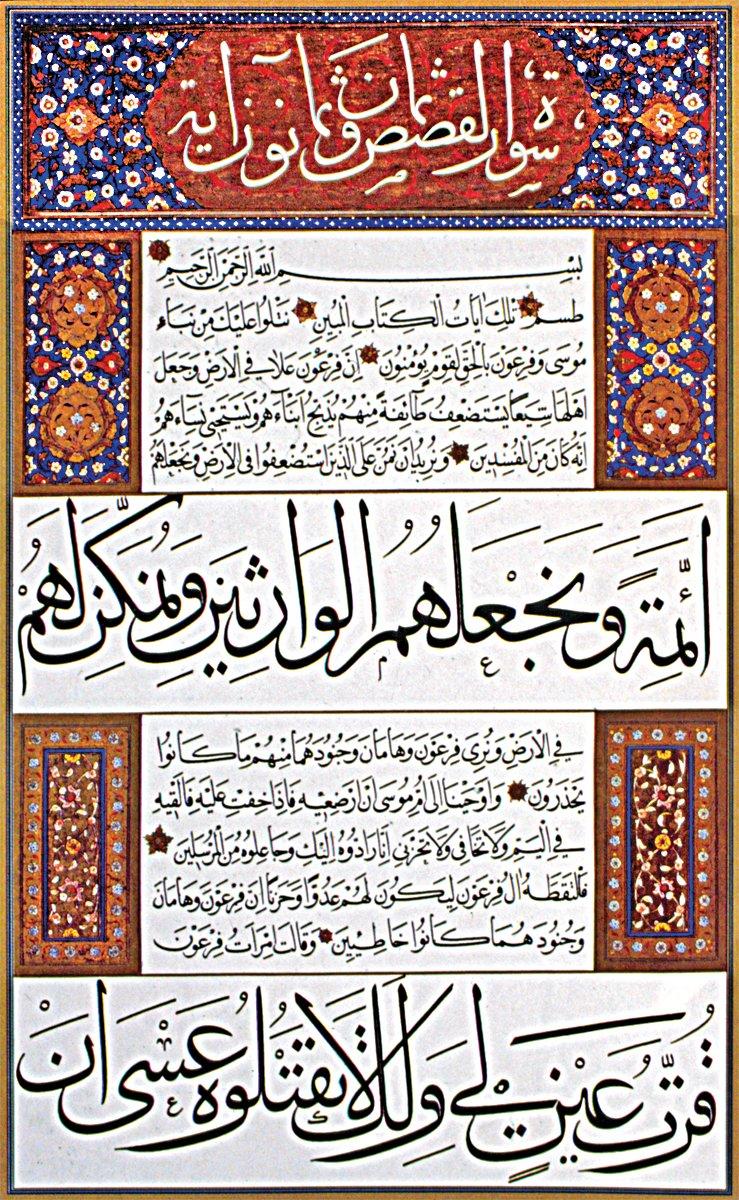 سورة القصص ثمان وثمانون آية
بِسْمِ اللَّهِ الرَّحْمٰنِ الرَّحِيمِ
طسم تِلْكَ اٰيَاتُ الْكِتَابِ الْمُبِينِ نَتْلُوا عَلَيْكَ مِنْ نَبَاءِ
مُوسَى وَفِرْعَوْنَ بِالْحَقِّ لِقَوْمٍ يُؤْمِنُونَ اِنَّ فِرْعَوْنَ عَلَا فِي الْاَرْضِ وَجَعَلَ
اَهْلَهَا شِيَعًا يَسْتَضْعِفُ طَآئِفَةً مِنْهُمْ يُذَبِّحُ اَبْنَاءَهُمْ وَيَسْتَحْيِى نِسَاءَهُمْ
اِنَّهُ كَانَ مِنَ الْمُفْسِدِينَ وَنُرِيدُ اَنْ نَمُنَّ عَلَى الَّذِينَ اسْتُضْعِفُوا فِى الْاَرْضِ وَنَجْعَلَهُمْ
اَئِمَّةً وَنَجْعَلَهُمُ الْوَارِثِينَ وَنُمَكِّنَ لَهُمْ
فِي الْاَرْضِ وَنُرِىَ فِرْعَوْنَ وَهَامَانَ وَجُنُودَهُمَا مِنْهُمْ مَا كَانُوا
يَحْذَرُونَ وَاَوْحَيْنَا اِلَى اُمِّ مُوسَى اَنْ اَرْضِعِيهِ فَاِذَا خِفْتِ عَلَيْهِ فَاَلْقِيهِ
فِي الْيَمِّ وَلَا تَخَافِى وَلَا تَحْزَنِى اِنَّا رَادُّوهُ اِلَيْكِ وَجَاعِلُوهُ مِنَ الْمُرْسَلِينَ
فَالْتَقَطَهُ اٰلُ فِرْعَوْنَ لِيَكُونَ لَهُمْ عَدُوًّا وَحَزَنًا اِنَّ فِرْعَوْنَ وَهَامَانَ
وَجُنُودَهُمَا كَانُوا خَاطِئِينَ وَقَالَتِ امْرَاَتُ فِرْعَوْنَ
قُرَّتُ عَيْنٍ لِي وَلَكَ لَا تَقْتُلُوهُ عَسَى اَنْ